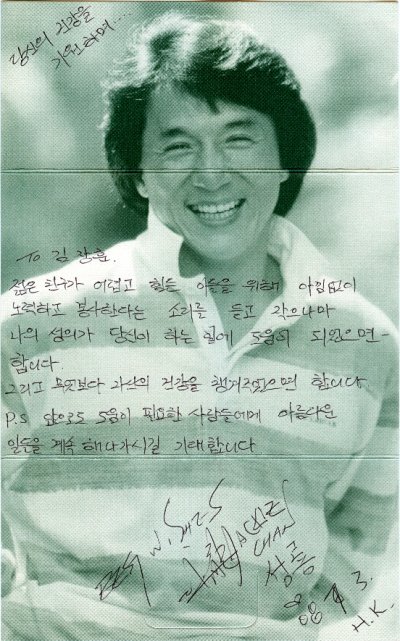 당신의 건강을
기원하며....
TO 김장훈.
젊은 친구가 어렵고 힘든 이들을 위해 아낌없이
노력하고 봉사한다는 소리를 듣고 작으나마
나의 성의가 당신이 하는 일에 도움이 되었으면-
합니다.
그리고 무엇보다 자신의 건강을 챙겨주었으면 합니다.
P.S 앞으로도 도움이 필요한 사람들에게 아름다운
일들을 계속 해나가시길 기대합니다
BEST WISHES
JACKIE
CHAN
성룡
H.K.